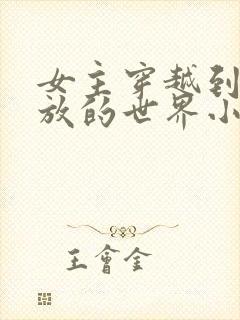 女主穿越到
放的世界小
王會金